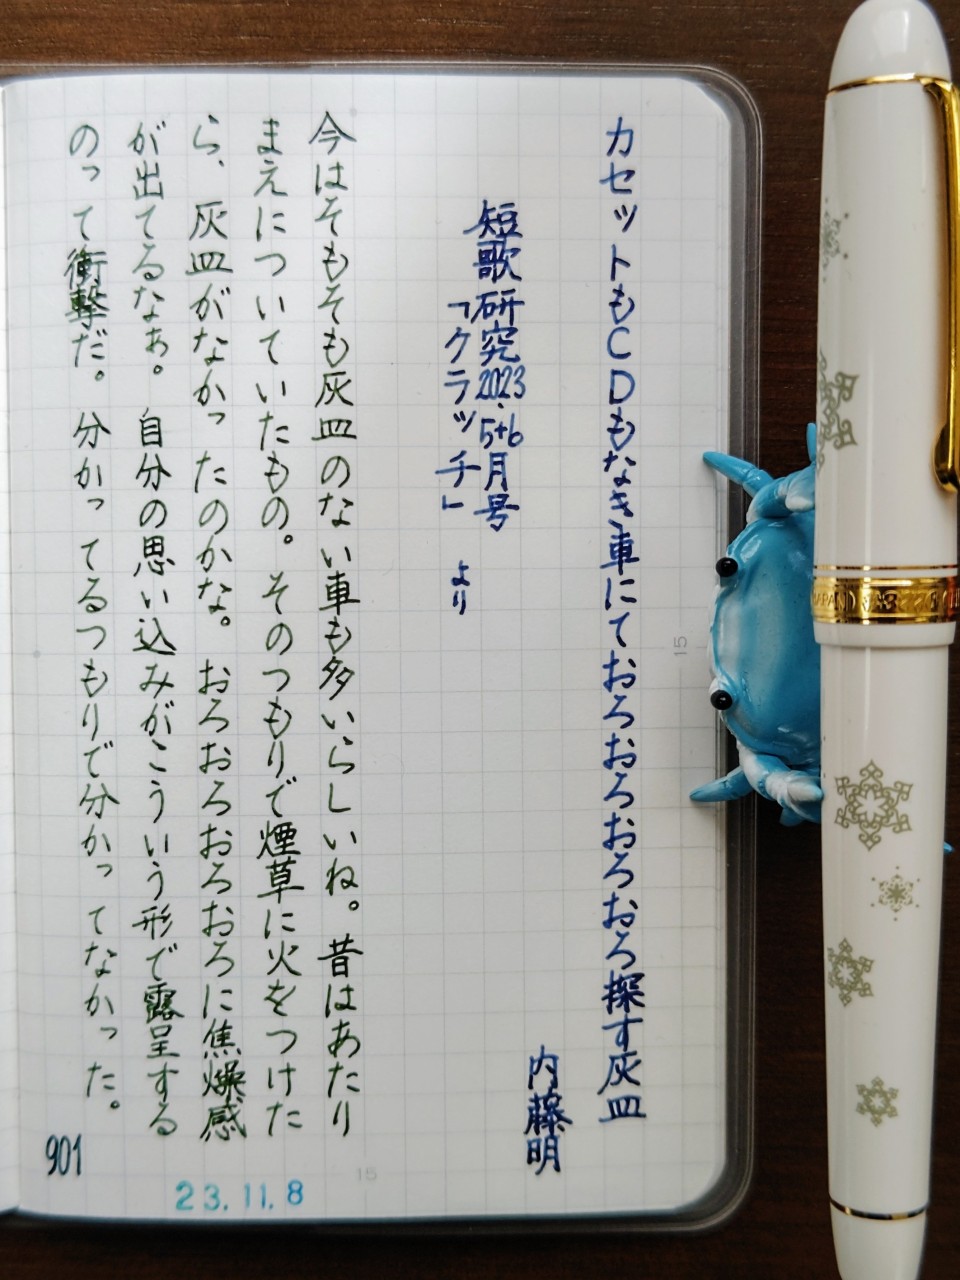 カセットもCDもなき車にておろおろおろおろ探す灰皿
内藤明
短歌研究2023.5+6月号
「クラッチ」より
今はそもそも灰皿のない車も多いらしいね。昔はあたり
まえについていたもの。そのつもりで煙草に火をつけた
ら、灰皿がなかったのかな。おろおろおろおろに焦燥感
が出てるなぁ。自分の思い込みがこういう形で露呈する
のって衝撃だ。分かってるつもりで分かってなかった。
901
23.11.8
15
15